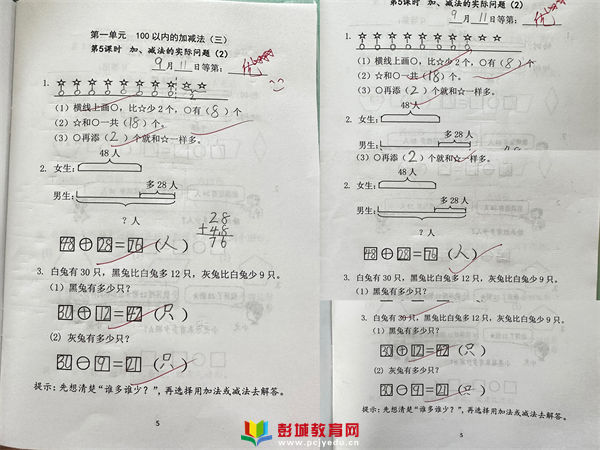 第一单元 100以内的加减法(三)
第5课时 加、减法的实际问题(2)
9月11日等第:优
1. ☆☆☆☆☆☆☆☆☆☆
(1)横线上画〇,比☆少2个,〇有(8)个
(2)☆和〇一共(18)个。
(3)〇再添(2)个就和☆一样多。
48人
2. 女生:
多28人
男生:
?人
28
+48
76
48+28=76(人)
3. 白兔有30只,黑兔比白兔多12只,灰兔比白兔少9只。
(1)黑兔有多少只?
30+12=42(只)
(2)灰兔有多少只?
30-9=21(只)
提示:先想清楚“谁多谁少?”,再选择用加法或减法去解答。
5
第5课时 加、减法的实际问题(2)
9月11日等第:优
1. ☆☆☆☆☆☆☆☆☆☆
(1)横线上画〇,比☆少2个,〇有(8)个
(2)☆和〇一共(18)个。
(3)〇再添(2)个就和☆一样多。
48人
2. 女生:
多28人
男生:
(3)〇再添(2)个就和☆一样多。
48人
2. 女生:
多28人
男生:
?人
48+28=76(人)
3. 白兔有30只,黑兔比白兔多12只,灰兔比白兔少9只。
(1)黑兔有多少只?
3. 白兔有30只,黑兔比白兔多12只,灰兔比白兔少9只。
(1)黑兔有多少只?
30+12=42(只)
(2)灰兔有多少只?
30-9=21(只)
提示:先想清楚“谁多谁少?”,再选择用加法或减法去解答。
5
彭城教育网
www.pcjyedu.cn